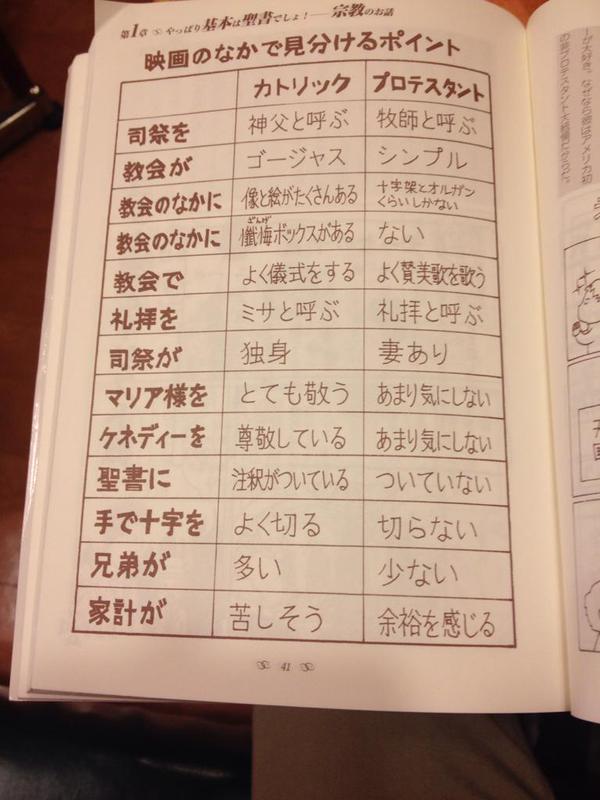 第1章 やっぱり基本は聖書でしょ！──宗教のお話
映画のなかで見分けるポイント
カトリック プロテスタント
司祭を 神父と呼ぶ 牧師と呼ぶ
教会が ゴージャス シンプル
教会のなかに 像と絵がたくさんある 十字架とオルガン
くらいしかない
ざんげ
教会のなかに 懺悔ボックスがある ない
教会で よく儀式をする よく賛美歌を歌う
礼拝を ミサと呼ぶ 礼拝と呼ぶ
司祭が 独身 妻あり
マリア様を とても敬う あまり気にしない
ケネディーを 尊敬している あまり気にしない
聖書に 注釈がついている ついていない
手で十字を よく切る 切らない
兄弟が 多い 少ない
家計が 苦しそう 余裕を感じる
41
ーが大好き。なぜなら彼はアメリカ初